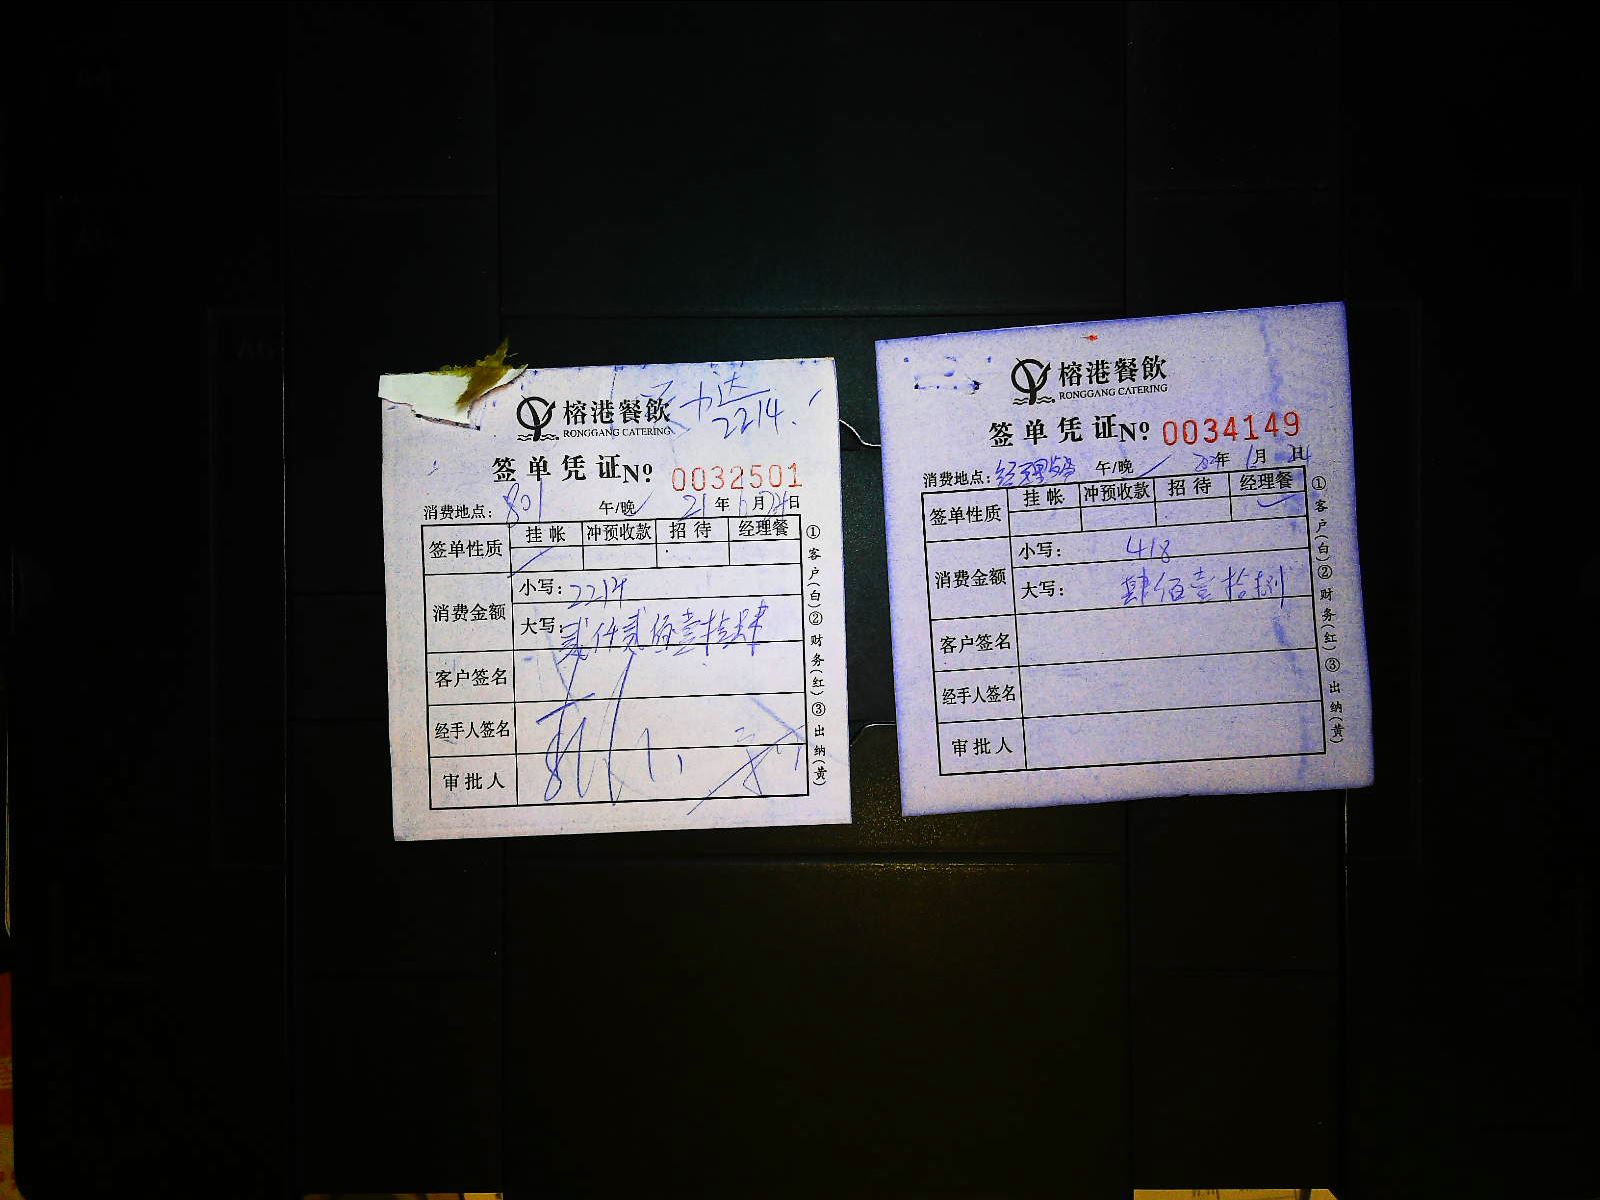 榕港餐飲
RONGGANG CATERING
达
2214.
签单凭证 Nº 0032501
消费地点: 801 午/晚 21年6月24日
签单性质 挂帐 冲预收款 招待 经理餐
消费金额 小写: 2214
大写: 贰仟贰佰壹拾肆
客户签名
经手人签名
审批人
①客户(白)②财务(红)③出纳(黄)
榕港餐飲
RONGGANG CATERING
签单凭证 Nº 0034149
消费地点: 经理餐 午/晚 年6月24日
签单性质 挂帐 冲预收款 招待 经理餐
消费金额 小写: 418
大写: 肆佰壹拾捌
客户签名
经手人签名
审批人
①客户(白)②财务(红)③出纳(黄)